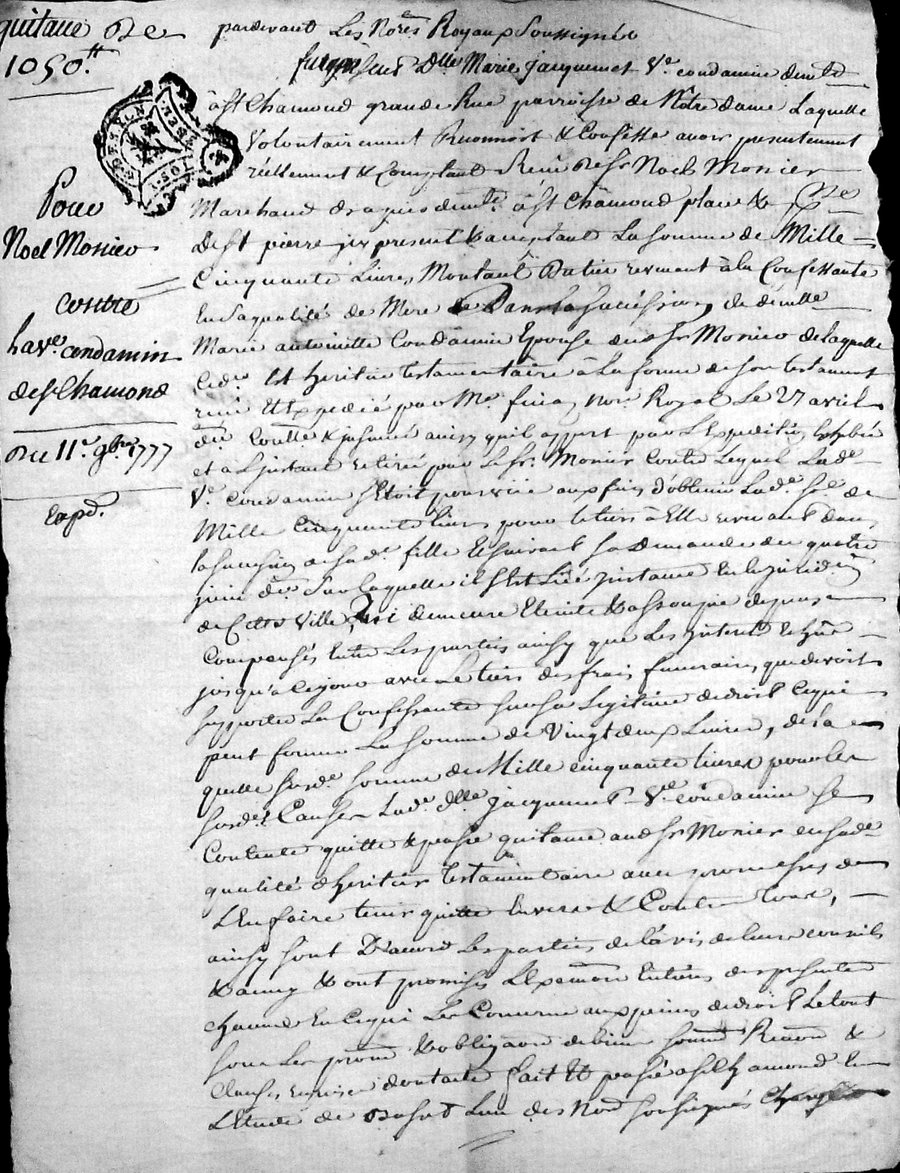 quitance de
1050.tt
Pour
Noel Monier
contre
la ve. condamin
de st Chamond
du 11e. 9bre 1777
Expd.
pardevant Les Nores Royaux Soussignés
fut présente Dlle Marie jacquemet Ve. condamine demte
à St Chamond grande Rue parroisse de Notre dame Laquelle
Volontairement Reconnoit & Confesse avoir presentement
réellement & Comptant Receu de Sr Noel Monier
Marchand demte. à St Chamond place & psse
de St pierre icy present & acceptant La somme de Mille
Cinquante Livres Montant du tier revenant à la Confessante
En Saqualité de Mere Dans la succession de demlle
Marie antoinette Condamin Epouse dud. Sr Monier de laquelle
Est heritier testamentaire à La forme de son testament
receu & Expedié par Me. finaz Nore. Royal Le 27 avril
dr. Controllé & insinué ainsy quil appert par L'Expedition Exhibée
et à L'jnstant retirée par Le Sr. Monier Contre Lequel Lade.
Ve. condamin s'Etoit pourvüe aux fins d'obtenir Lade. se. de
Mille Cinquante livres pour le tiers à Elle revenant dans
la succession de sade. fille Et suivant sa demande du quatre
juin dr. Sur Laquelle il s'Est Lié jnstance En la juridon
de Cette Ville, qui demeure Eteinte & assoupie depens
Compensés Entre Les parties ainsy que Les jnterets
jusqu'à Cejour avec Le tiers des frais funeraires que devoit
supporter La Confessante sur sa Légitime de droit Cequi
peut former La somme de Vingt deux Livres, de la
quelle susde. somme de Mille cinquante livres pour les
susdes. Causes Lade. dlle jacquemet Ve. condamin se
Contente quitte & passe quitance aud. Sr Monier en sade.
qualité d'heritier testamentaire avec promesses de
L'En faire tenir quitte Envers & Contre tous,
ainsy sont D'accord Les parties de l'avis de leurs conseils
& amis & ont promis L'Exécution Entiere des presentes
chacune En Cequi Les Concerne aux peines de droit Le tout
sous Les prom. & obligaon de biens soumon Renon &
Clauses requises dont acte fait & passé à St Chamond En
L'Etude de L'un des Nores soussignés